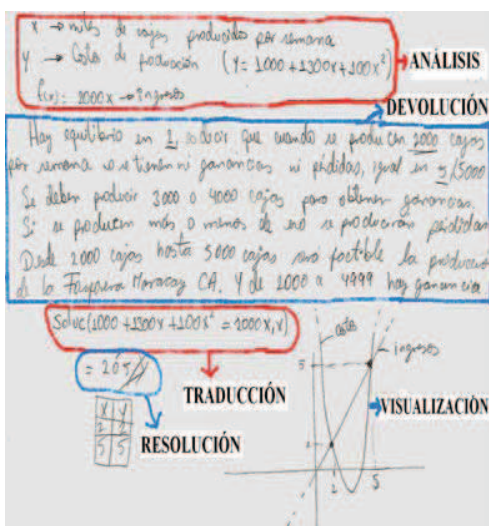 x → miles de cajas producidas por semana
y → Costo de producción (Y = 1000 + 1300x + 100x²)
f(x) = 2000x → ingresos
ANÁLISIS
DEVOLUCIÓN
Hay equilibrio en 2, es decir que cuando se producen 2000 cajas
por semana no se tienen ni ganancias ni pérdidas, igual en 5/5000
Se deben producir 3000 o 4000 cajas para obtener ganancias.
Si se producen más o menos de eso se producirán pérdidas
Desde 2000 cajas hasta 5000 cajas será factible la producción
de la Maracay CA. Y de 2000 a 4999 hay ganancia.
Solve(1000 + 1300x + 100x² = 2000x, x)
= 2 ó 5
TRADUCCIÓN
x y
2 2
5 5
RESOLUCIÓN
costo
ingresos
5
2
VISUALIZACIÓN
2 5